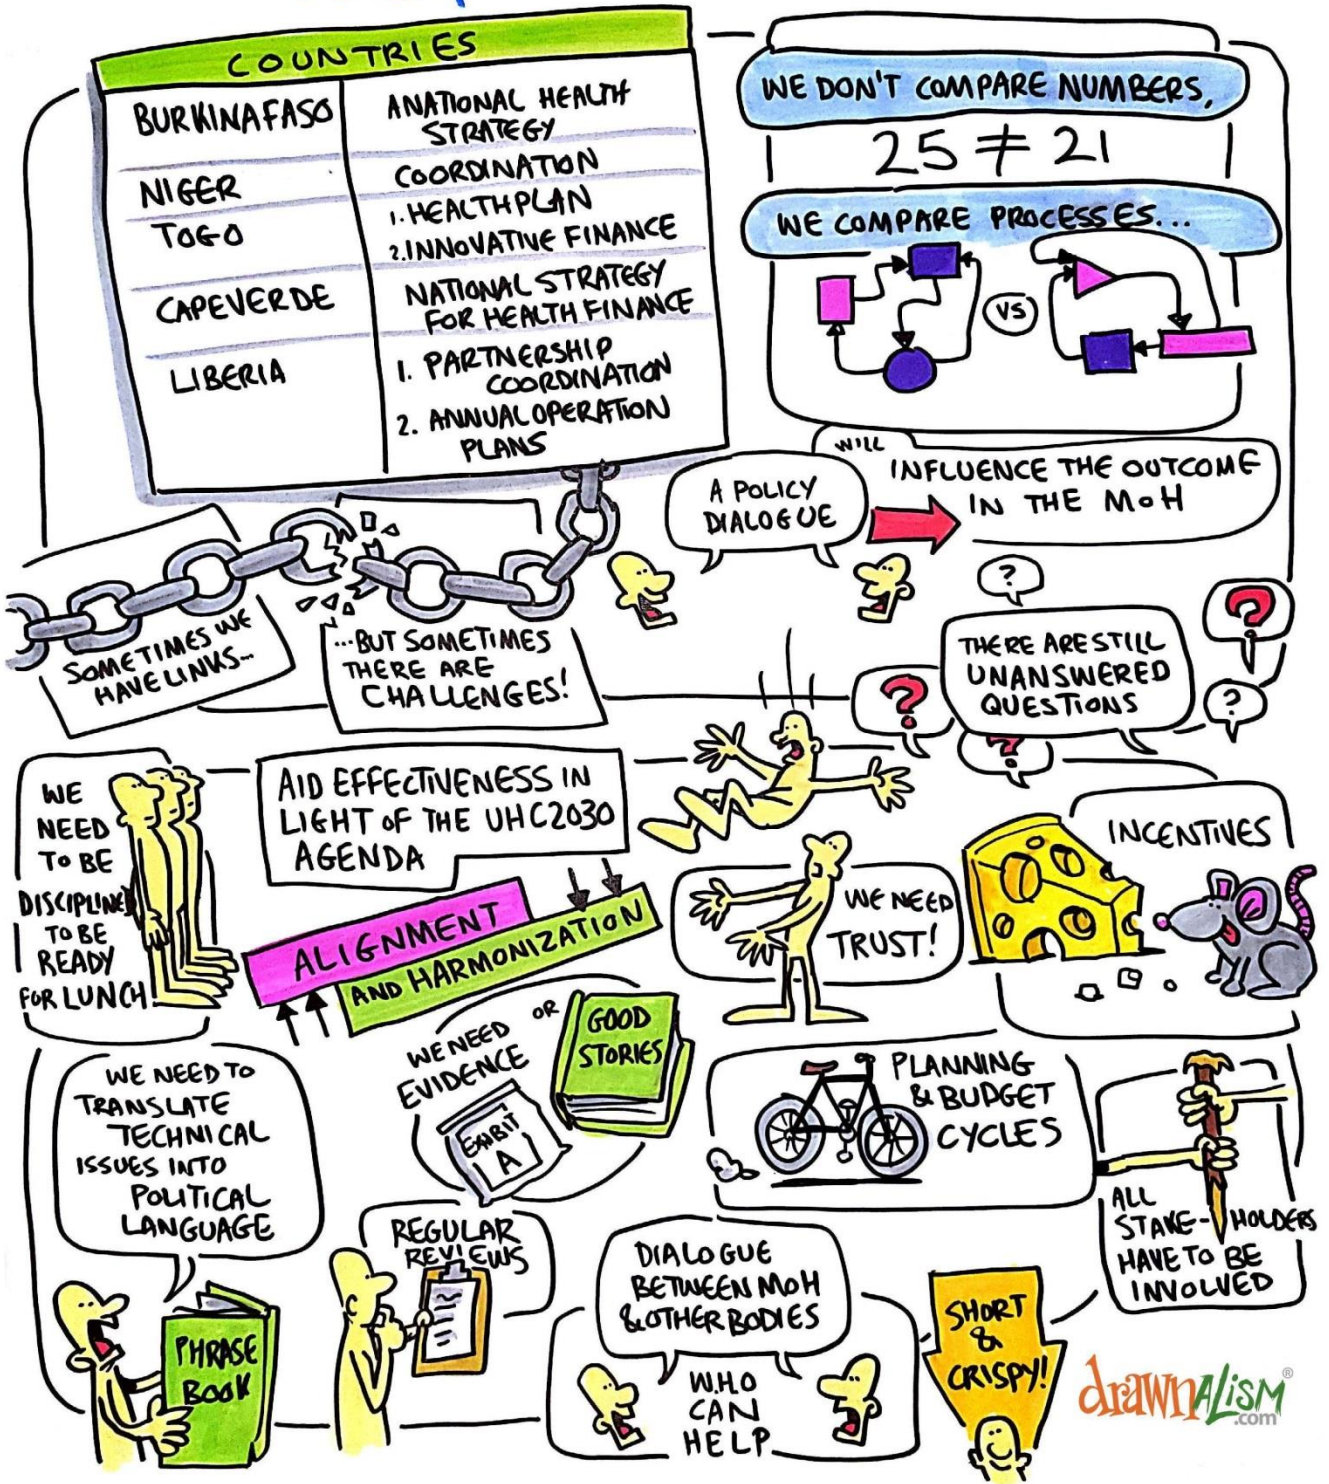 COUNTRIES
BURKINAFASO
A NATIONAL HEALTH
STRATEGY
NIGER
COORDINATION
TOGO
1. HEALTH PLAN
2. INNOVATIVE FINANCE
CAPEVERDE
NATIONAL STRATEGY
FOR HEALTH FINANCE
LIBERIA
1. PARTNERSHIP
COORDINATION
2. ANNUAL OPERATION
PLANS
WE DON'T COMPARE NUMBERS,
25 ≠ 21
WE COMPARE PROCESSES...
VS
A POLICY
DIALOGUE
WILL
INFLUENCE THE OUTCOME
IN THE MoH
SOMETIMES WE
HAVE LINKS...
...BUT SOMETIMES
THERE ARE
CHALLENGES!
?
?
THERE ARE STILL
UNANSWERED
QUESTIONS
?
?
?
WE
NEED
TO BE
DISCIPLINED
TO BE
READY
FOR LUNCH
AID EFFECTIVENESS IN
LIGHT OF THE UHC2030
AGENDA
ALIGNMENT
AND HARMONIZATION
WE NEED
TRUST!
INCENTIVES
WE NEED
EVIDENCE
OR
GOOD
STORIES
EXHIBIT
A
PLANNING
& BUDGET
CYCLES
ALL
STAKE-HOLDERS
HAVE TO BE
INVOLVED
WE NEED TO
TRANSLATE
TECHNICAL
ISSUES INTO
POLITICAL
LANGUAGE
PHRASE
BOOK
REGULAR
REVIEWS
DIALOGUE
BETWEEN MOH
& OTHER BODIES
W.H.O
CAN
HELP
SHORT
&
CRISPY!
drawnALISM®
.com